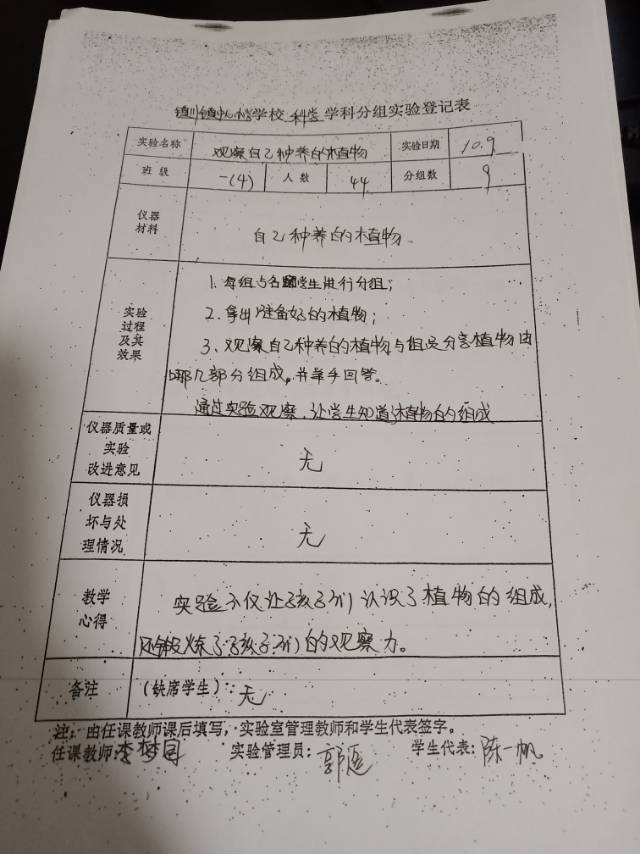 镇川镇中心小学学校 科学 学科分组实验登记表
实验名称 观察自己种养的植物 实验日期 10.9
班 级 一(4) 人 数 44 分组数 9
仪器
材料
自己种养的植物.
实验
过程
及其
效果
1. 每组5名学生进行分组;
2. 拿出准备好的植物;
3. 观察自己种养的植物与组员分享植物由
哪几部分组成,并举手回答。
通过实验观察,让学生知道植物的组成
仪器质量或
实验
改进意见
无
仪器损
坏与处
理情况
无
教学
心得
实验不仅让孩子们认识了植物的组成,
还锻炼了孩子们的观察力。
备注 (缺席学生): 无
注: 由任课教师课后填写,实验室管理教师和学生代表签字。
任课教师: 李梦园 实验管理员: 郭 学生代表: 陈一帆